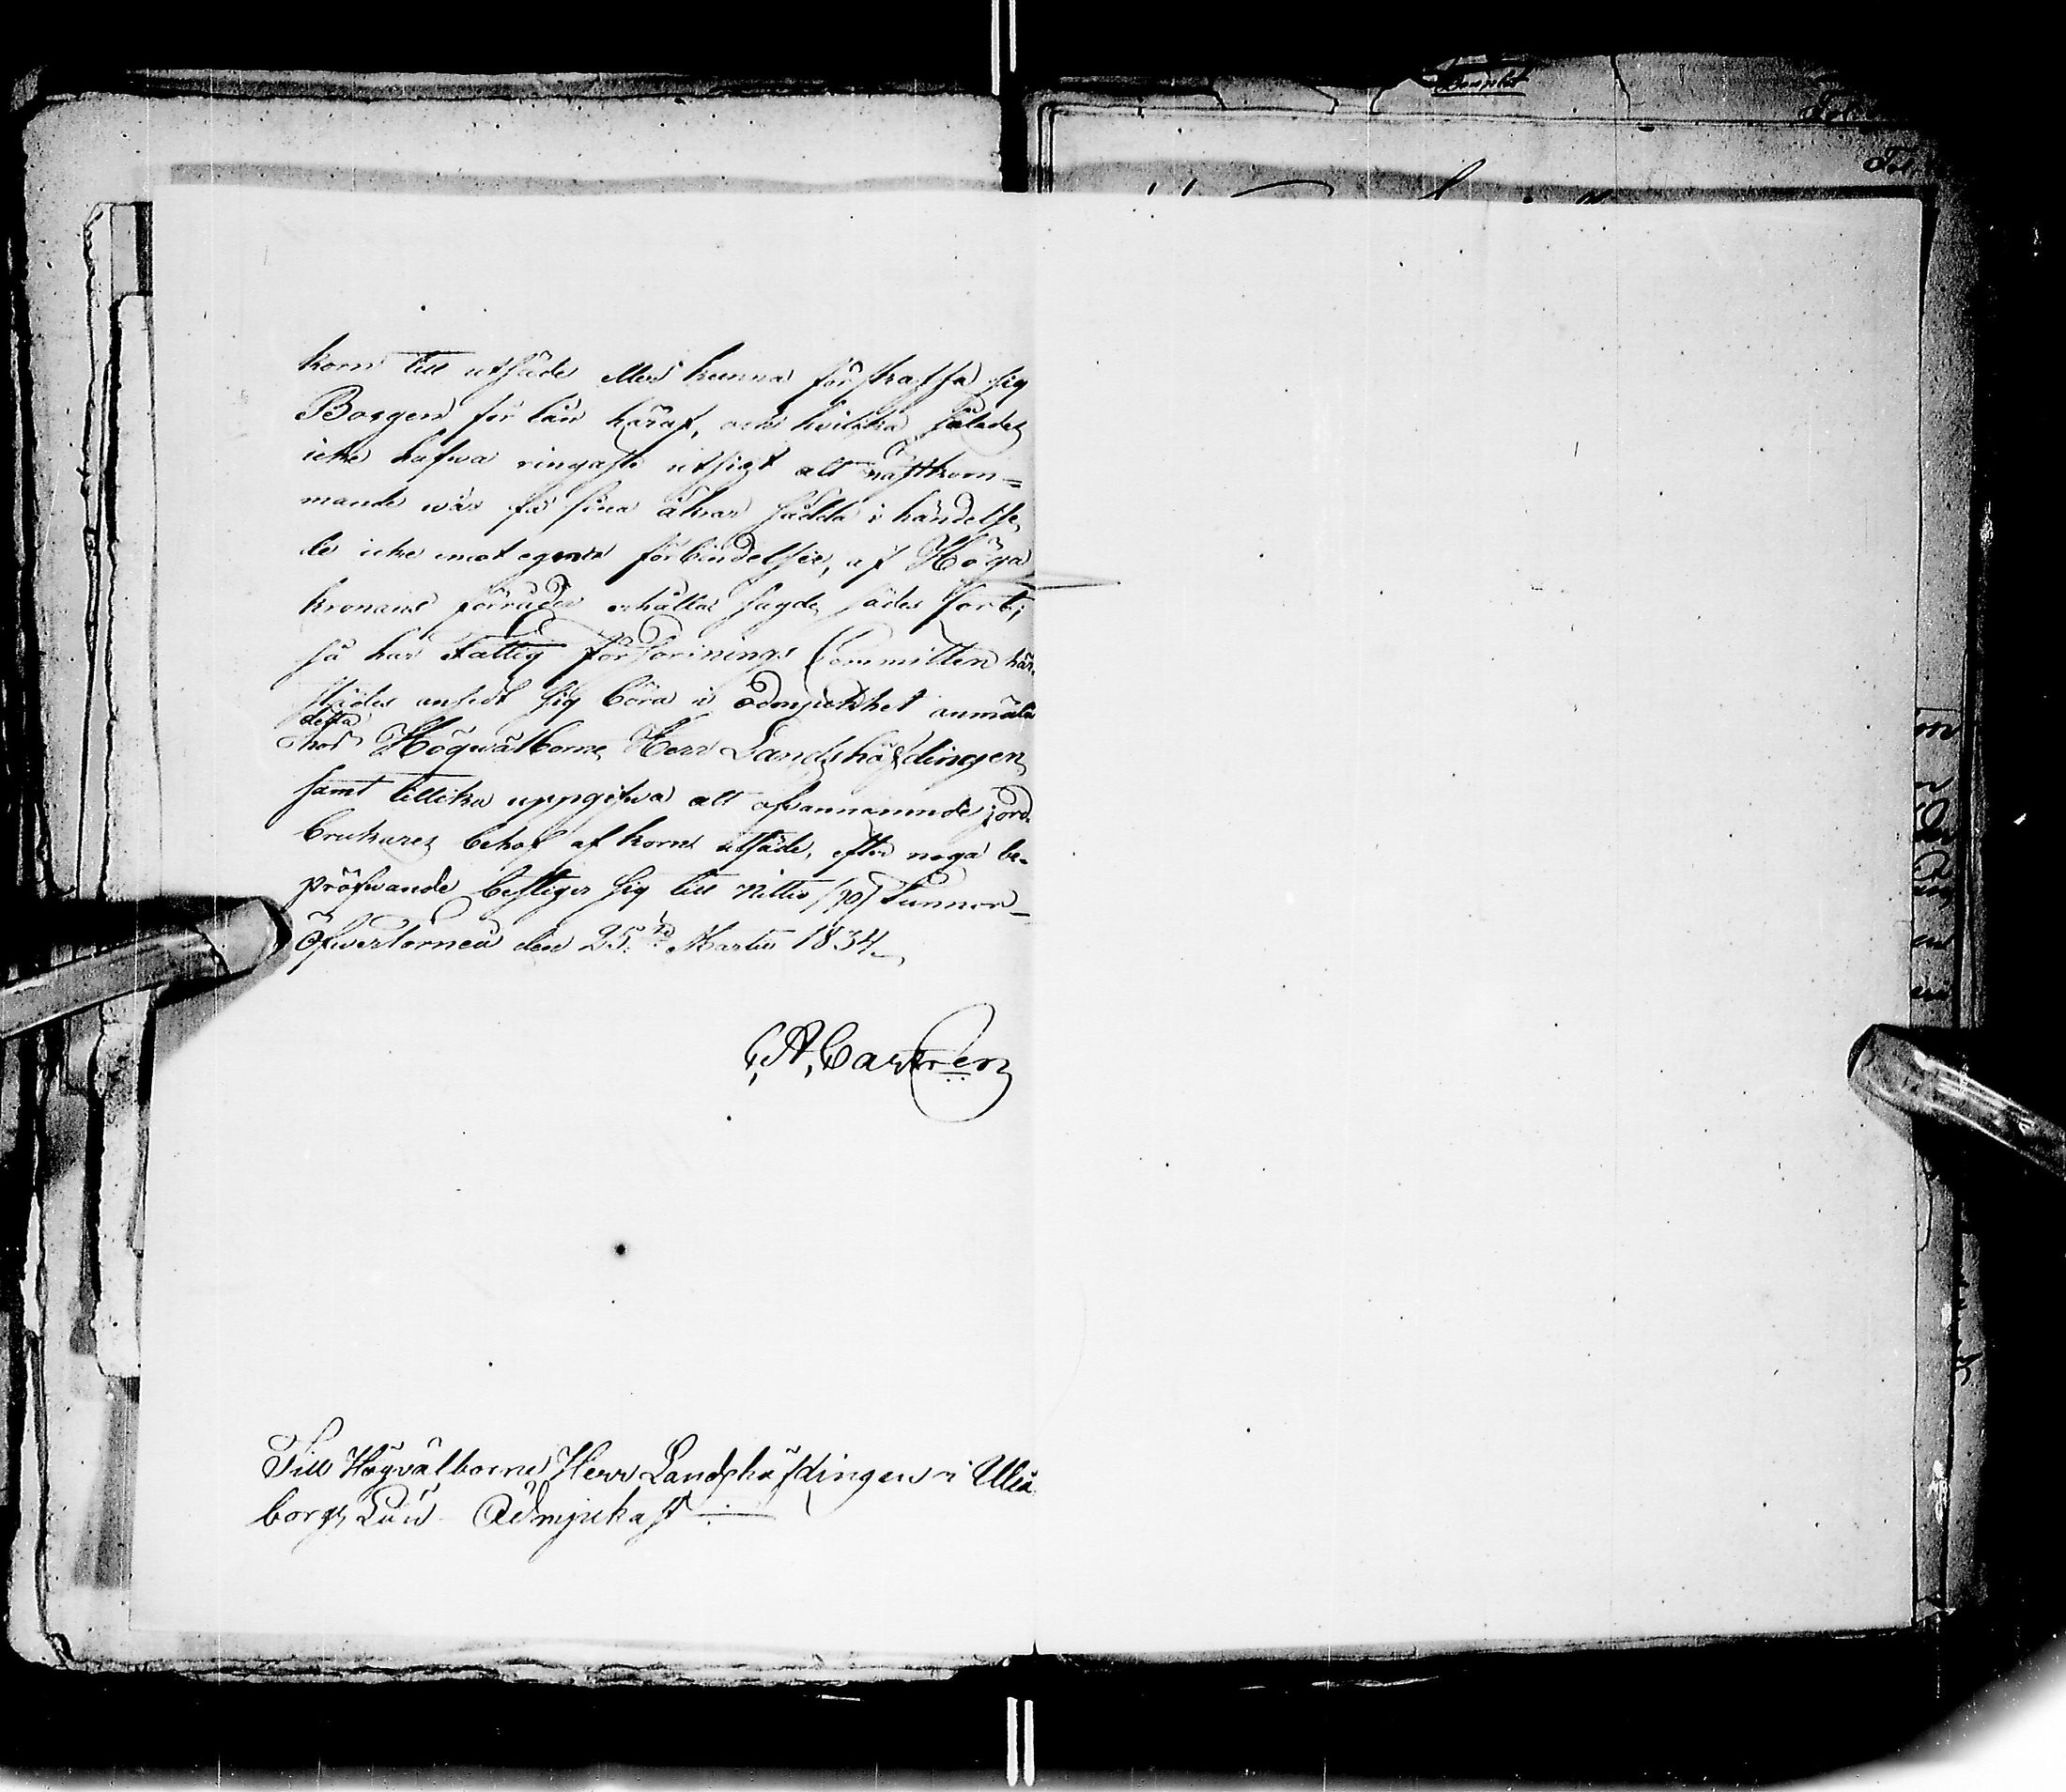 korn till utsäde eller kunna förskaffa sig
Borgen för lån häraf, och hvilka således
icke hafwa ringaste utsigt att nästkom=
mande vår få sina åkrar sådda i händelse
de icke emot egna förbindelser, af Höga
kronans förråder erhålla sagde sädes sort;
så har Fattig försörjnings Committen här-
städes ansedt sig böra i ödmjukhet anmäla
detta
hos Högwälborne Herr Landshöfdingen
samt tillika uppgifwa att ofvannämnde jord
brukares behof af korn utsäde, efter noga be-
pröfwande bestiger sig till Nittio (90) Tunnor_
Öfwertorneå den 25:te Martii 1834.
C, A, Castrén
Till Högvälborne Herr Landshöfdingen i Uleå
borgs Län Ödmjukast